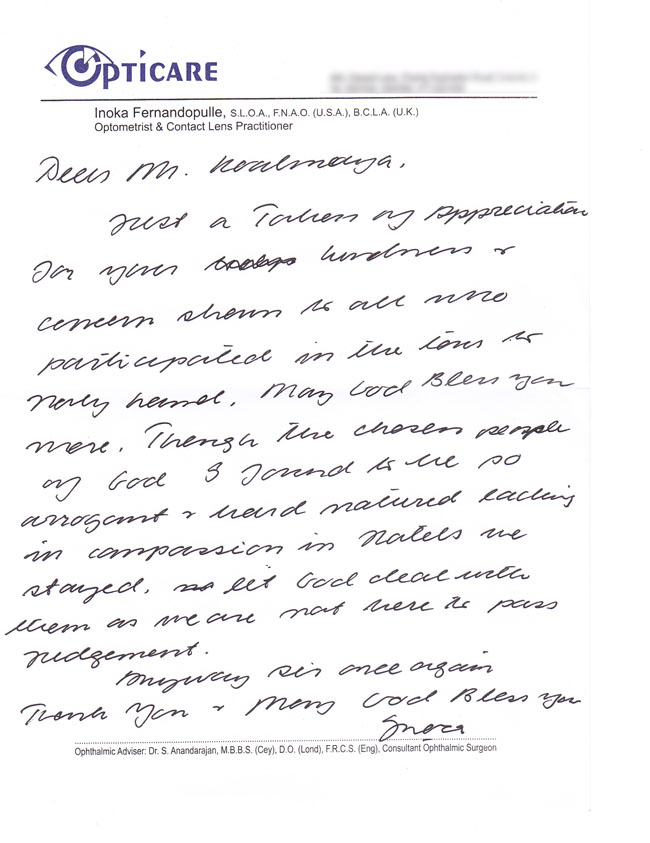 OPTICARE
Inoka Fernandopulle, S.L.O.A., F.N.A.O. (U.S.A.), B.C.L.A. (U.K.)
Optometrist & Contact Lens Practitioner
Dear Mr.
Just a Token of Appreciation
for your kindness &
concern shown to all who
participated in the tour to
Holy hand. May God Bless you
more. Though the chosen people
of God I found to be so
arrogant & hard natured lacking
in compassion in Hotels we
stayed. let God deal with
them as we are not here to pass
judgement.
Anyway sir once again
Thank You & May God Bless you
Inoka
Ophthalmic Adviser: Dr. S. Anandarajan, M.B.B.S. (Cey), D.O. (Lond), F.R.C.S. (Eng), Consultant Ophthalmic Surgeon